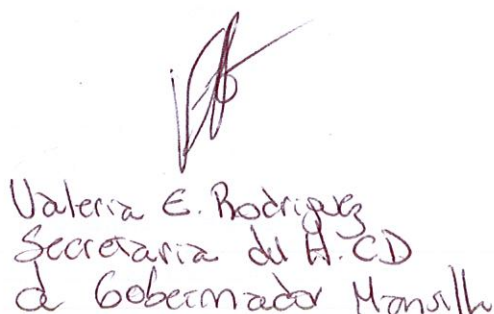 Valeria E. Rodriguez
Secretaria del H.CD
de Gobernador Mansilla